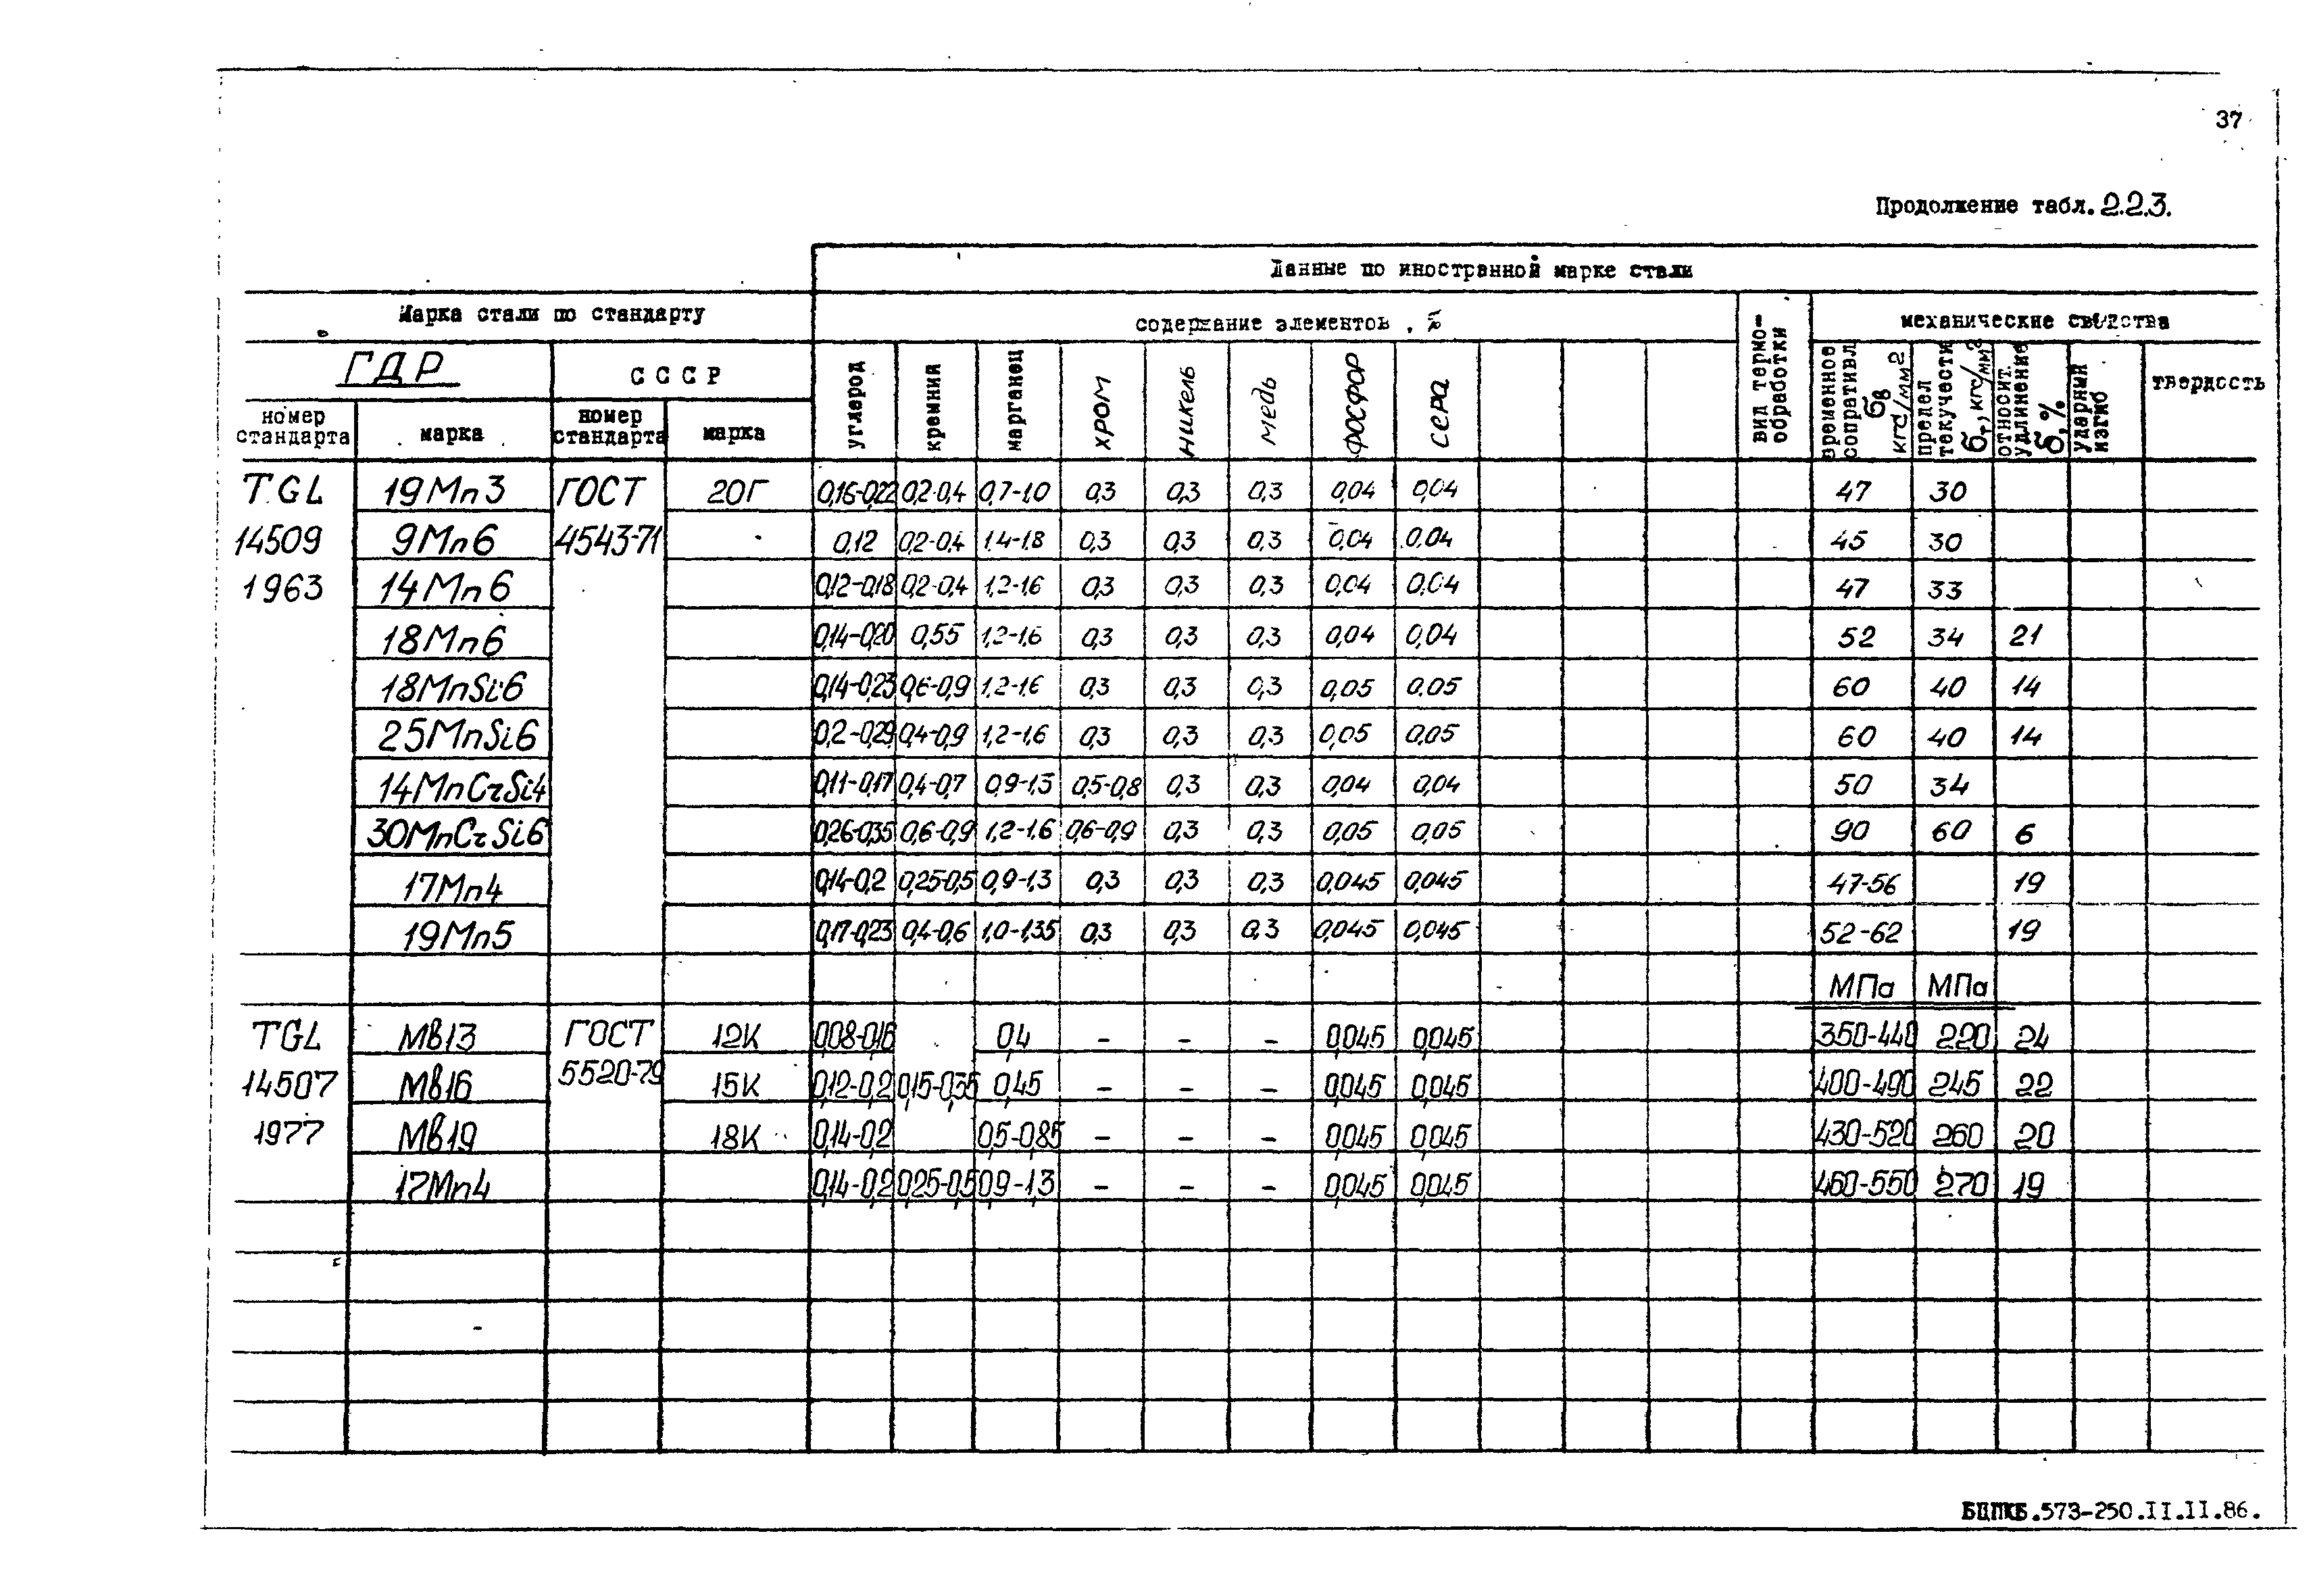 37
Продолжение табл. 2.2.3.
Данные по иностранной марке стали
Марка стали по стандарту
содержание элементов, %
вид термо-
обработки
механические свойства
ГДР
СССР
углерод
кремний
марганец
хром
никель
медь
фосфор
сера
временное
сопративл.
σв
кгс/мм2
предел
текучести
σт, кгс/мм2
относит.
удлинение
σ, %
ударный
изгиб
твердость
номер
стандарта
марка
номер
стандарта
марка
TGL 19Mn3 ГОСТ 20Г 0,16-0,22 0,2-0,4 0,7-1,0 0,3 0,3 0,3 0,04 0,04 47 30
14509 9Mn6 4543-71 - 0,12 0,2-0,4 1,4-1,8 0,3 0,3 0,3 0,04 0,04 45 30
1963 14Mn6 0,12-0,18 0,2-0,4 1,2-1,6 0,3 0,3 0,3 0,04 0,04 47 33
18Mn6 0,14-0,20 0,55 1,2-1,6 0,3 0,3 0,3 0,04 0,04 52 34 21
18MnSi6 0,14-0,23 0,6-0,9 1,2-1,6 0,3 0,3 0,3 0,05 0,05 60 40 14
25MnSi6 0,2-0,29 0,4-0,9 1,2-1,6 0,3 0,3 0,3 0,05 0,05 60 40 14
14MnCrSi4 0,11-0,17 0,4-0,7 0,9-1,3 0,5-0,8 0,3 0,3 0,04 0,04 50 34
30MnCrSi6 0,26-0,35 0,6-0,9 1,2-1,6 0,6-0,9 0,3 0,3 0,05 0,05 90 60 6
17Mn4 0,14-0,2 0,25-0,5 0,9-1,3 0,3 0,3 0,3 0,045 0,045 47-56 19
19Mn5 0,17-0,23 0,4-0,6 1,0-1,35 0,3 0,3 0,3 0,045 0,045 52-62 19
МПа МПа
TGL Мв13 ГОСТ 12К 0,08-0,16 0,4 - - - 0,045 0,045 350-440 220 24
14507 Мв16 5520-79 15К 0,12-0,2 0,15-0,35 0,45 - - - 0,045 0,045 400-490 245 22
1977 Мв19 18К 0,14-0,2 0,5-0,85 - - - 0,045 0,045 430-520 260 20
17Mn4 0,14-0,2 0,25-0,5 0,9-1,3 - - - 0,045 0,045 460-550 270 19
БЦПКБ.573-250.II.II.86.